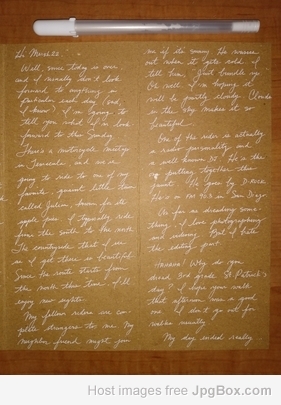 Hi Mush22
Well, since today is over
and I usually don't look
forward to anything in
particular each day (sad,
I know) I'm going to
tell you what I do look
forward to this Sunday.
There's a motorcycle meetup
in Temecula and we are
going to ride to one of my
favorite, quaint little town
called Julian, known for its
apple pies. I typically ride
from the south to the north.
The countryside that I see
as I get there is beautiful.
Since the route starts from
the north this time, I'll
enjoy new sights.
My fellow riders are com-
plete strangers to me. My
neighbor friend might join
me if it's sunny. He
out when it gets cold. I
tell him, "Just bundle up."
Oh well. I'm hoping it
will be partly cloudy. Clouds
in the sky makes it so
beautiful.
One of the rider is actually
a radio personality and
a well known DJ. He's the
pulling together this
He goes by D-Rock.
He's on FM in San Diego.
As far as dreading some-
thing, I love photographing
weddings. But I hate
the editing part.
Why do you
dread 3rd grade St. Patrick's
day? I hope your walk
that afternoon was a good
one. I don't go out for
walks usually.
My day ended really
Host images free JpgBox.com